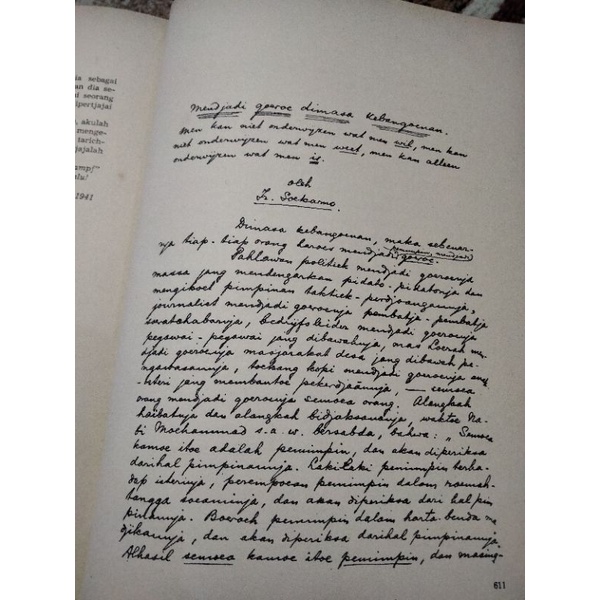 ia sebagai
an dia se-
i seorang
ipertjajai
, akulah
menge-
tarich-
gajalah
ampf"
alu!
1941
Mendjadi goeroe dimasa kebangoenan.
Men kan niet onderwijzen wat men wil, men kan
niet onderwijzen wat men weet, men kan alleen
onderwijzen wat men is.
oleh
Ir. Soekarno.
Dimasa kebangoenan, maka sebenar-
nja tiap-tiap orang haroes mendjadi pemimpin, mendjadi goeroe.
Pahlawan politiek mendjadi goeroenja
massa jang mendengarkan pidato-pidatonja dan
mengikoet pimpinan taktiek-perdjoangannja,
journalist mendjadi goeroenja pembatja-pembatja
soeratchabarnja, bedrijfsleider mendjadi goeroenja
pegawai-pegawai jang dibawahnja, mas Loerah men-
djadi goeroenja masjarakat desa jang dibawah pe-
ngawasannja, toekang kopi mendjadi goeroenja
-isteri jang membantoe pekerdjaännja, — semoea
orang mendjadi goeroenja semoea orang. Alangkah
haibatnja dan alangkah bidjaksananja, waktoe Na-
bi Mochammad s.a.w. bersabda, bahwa: „Semoea
kamoe itoe adalah pemimpin, dan akan diperiksa
darihal pimpinannja. Laki-laki pemimpin terha-
dap isterinja, perempoean pemimpin dalam roemah-
tangga soeaminja, dan akan diperiksa dari hal pim
pinannja. Boeroeh pemimpin dalam harta-benda ma
djikannja, dan akan diperiksa darihal pimpinannja.
Alhasil semoea kamoe itoe pemimpin, dan masing-
611